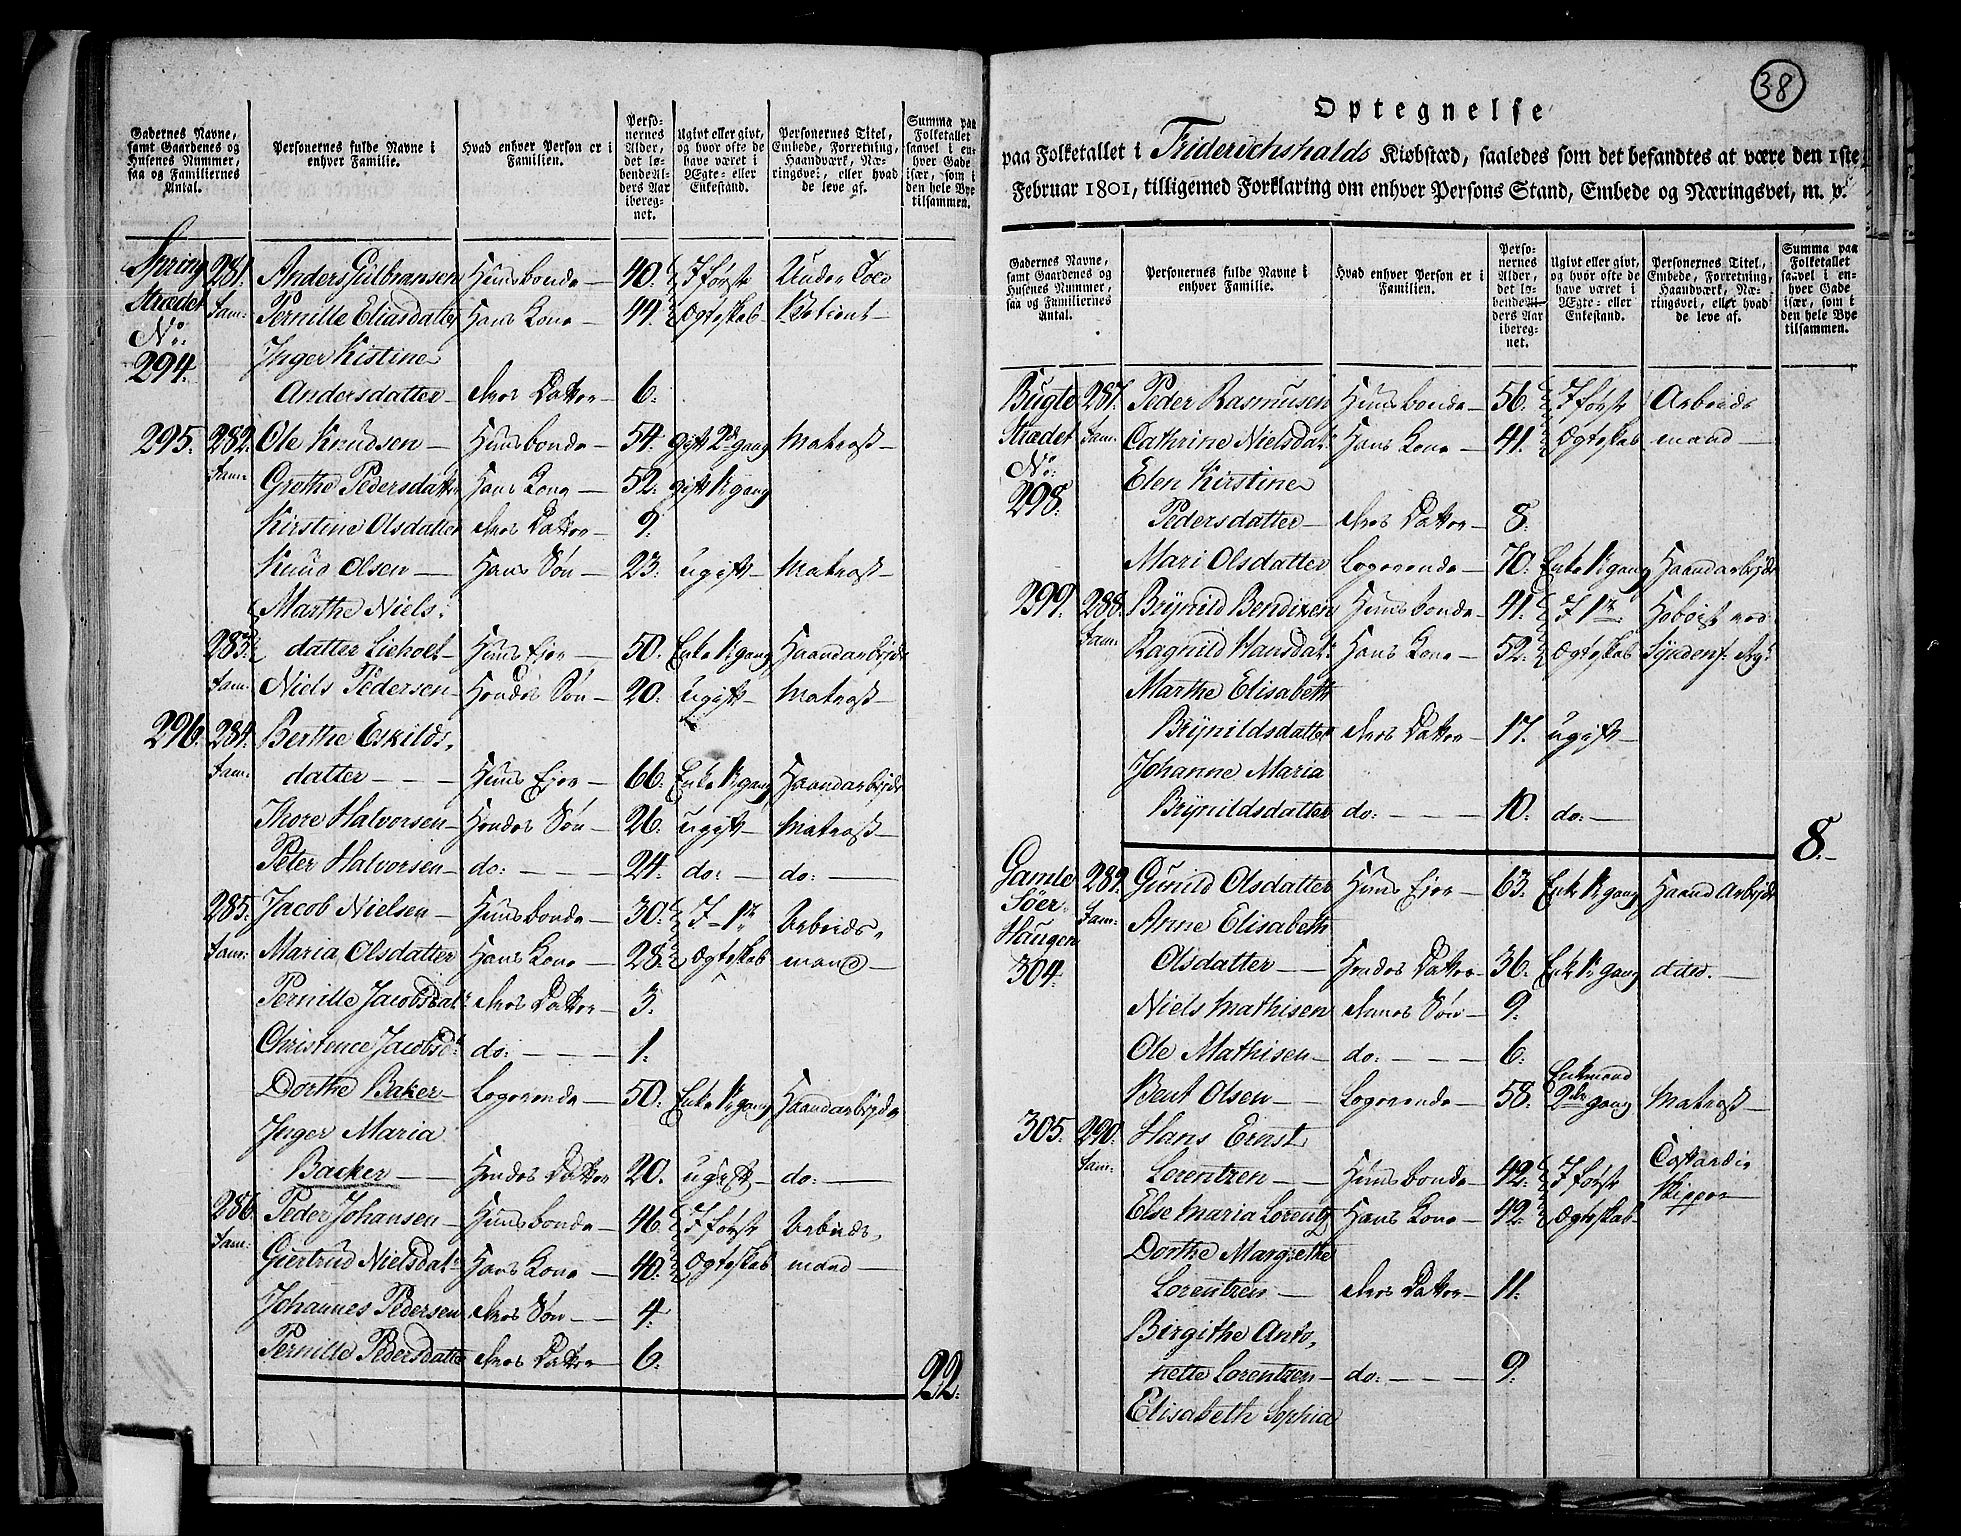 Gadernes Navne, samt Gaardenes og Husenes Nummer, saa og Familiernes Antal.
Personernes fulde Navne i enhver Familie.
Hvad enhver Person er i Familien.
Personernes Alder, det løbende Alders Aar iberegnet.
Ugivt eller givt, og hvor ofte de have været i Ægte- eller Enkestand.
Personernes Titel, Embede, Forretning, Haandværk, Næringsvei, eller hvad de leve af.
Summa paa Folketallet saavel i enhver Gade især, som i den hele Bye tilsammen.
Spring 281. Anders Gulbransen Huusbonde 40. I første Under Told
Strædet Fam: Pernille Eliasdatter Hans Kone 44. Ægteskab Betient
No:
294. Inger Kistine
Andersdatter Deres Datter 6.
295. 282. Ole Knudsen Huusbonde 54. gift 2d gang Matros
Fam: Grethe Pedersdatter Hans Kone 52. gift 1e gang
Kirstine Olsdatter Deres Datter 9.
Knud Olsen Hans Søn 23. ugift Matros
Marthe Niels:
283. datter Lieholt Huus Ejer 50. Enke 1e gang Haandarbejde
Fam: Niels Pedersen Hendes Søn 20. ugift Matros
296. 284. Berthe Eskilds,
Fam: datter Huus Ejer 66. Enke 1e gang Haandarbejde
Thore Halvorsen Hendes Søn 26. ugift Matros
Peter Halvorsen do: 24. do: do:
285. Jacob Nielsen Huusbonde 30. I 1te Arbeids,
Fam: Maria Olsdatter Hans Kone 28. Ægteskab mand
Pernille Jacobsdat: Deres Datter 3.
Christence Jacobsd: do: 1.
Dorthe Baker Logerende 50. Enke 1e gang Haandarbejde
Inger Maria
Backer Hendes Datter 20. ugift do:
286. Peder Johansen Huusbonde 46. I første Arbeids,
Fam: Giertrud Nielsdat: Hans Kone 40. Ægteskab mand
Johannes Pedersen Deres Søn 4.
Pernille Pedersdatter Deres Datter 6.
22.
38
Optegnelse
paa Folketallet i Friderichshalds Kiøbstæd, saaledes som det befandtes at være den 1ste
Februar 1801, tilligemed Forklaring om enhver Persons Stand, Embede og Næringsvei, m. v.
Gadernes Navne, samt Gaardenes og Husenes Nummer, saa og Familiernes Antal.
Personernes fulde Navne i enhver Familie.
Hvad enhver Person er i Familien.
Personernes Alder, det løbende Alders Aar iberegnet.
Ugivt eller givt, og hvor ofte de have været i Ægte- eller Enkestand.
Personernes Titel, Embede, Forretning, Haandværk, Næringsvei, eller hvad de leve af.
Summa paa Folketallet saavel i enhver Gade især, som i den hele Bye tilsammen.
Bugte 287. Peder Rasmusen Huusbonde 56. I første Arbeids
Strædet Fam: Cathrine Nielsdat: Hans Kone 41. Ægteskab mand
No:
298. Elen Kirstine
Pedersdatter Deres Datter 8.
Mari Olsdatter Logerende 70. Enke 1e gang Haandarbejde
299. 288. Brynild Bendixen Huusbonde 41. I 1te Hoboist ved
Fam: Ragnild Hansdat: Hans Kone 52. Ægteskab
Marthe Elisabeth
Brynildsdatter Deres Datter 17. ugift
Johanne Maria
Brynildsdatter do: 10. do:
8.
Gamle 289. Gunild Olsdatter Huus Ejer 63. Enke 1e gang Haand Arbejde
Söer Fam: Anne Elisabeth
Haugen
304. Olsdatter Hendes Datter 36. Enke 1e gang do.
Niels Mathisen Annes Søn 9.
Ole Mathisen do: 6.
Bent Olsen Logerende 58. Enkemand 2den gang Matros
305. 290. Hans Ernst
Fam: Lorentzen Huusbonde 42. I første Skipper
Else Maria Lorentz Hans Kone 42. Ægteskab
Dorthe Margrethe
Lorentzen Deres Datter 11.
Birgithe Anto,
nette Lorentzen do: 9.
Elisabeth Sophia